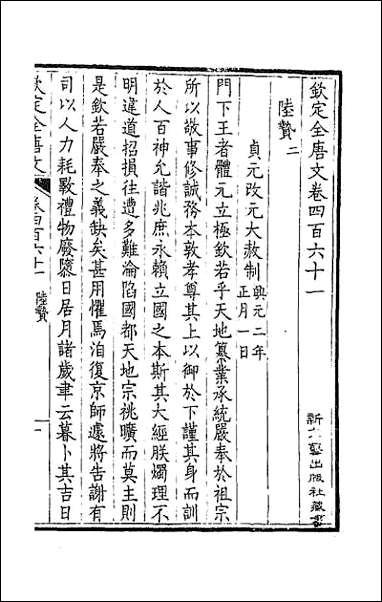 欽定全唐文卷四百六十一
陸贄二
貞元改元大赦制 興元二年
正月一日
門下王者體元立極欽若乎天地纂業承統嚴奉於祖宗
所以敬事修誠務本敦孝尊其上以御於下謹其身而訓
於人百神允諧兆庶永賴立國之本斯其大經朕燭理不
明違道招損往遭多難淪陷國都天地宗祧曠而莫主則
是欽若嚴奉之義缺矣甚用懼焉洎復京師遽將告謝有
司以人力耗斁禮物廢隳日居月諸歲聿云暮卜其吉日
欽定全唐文
卷四百六十一 陸贄
一